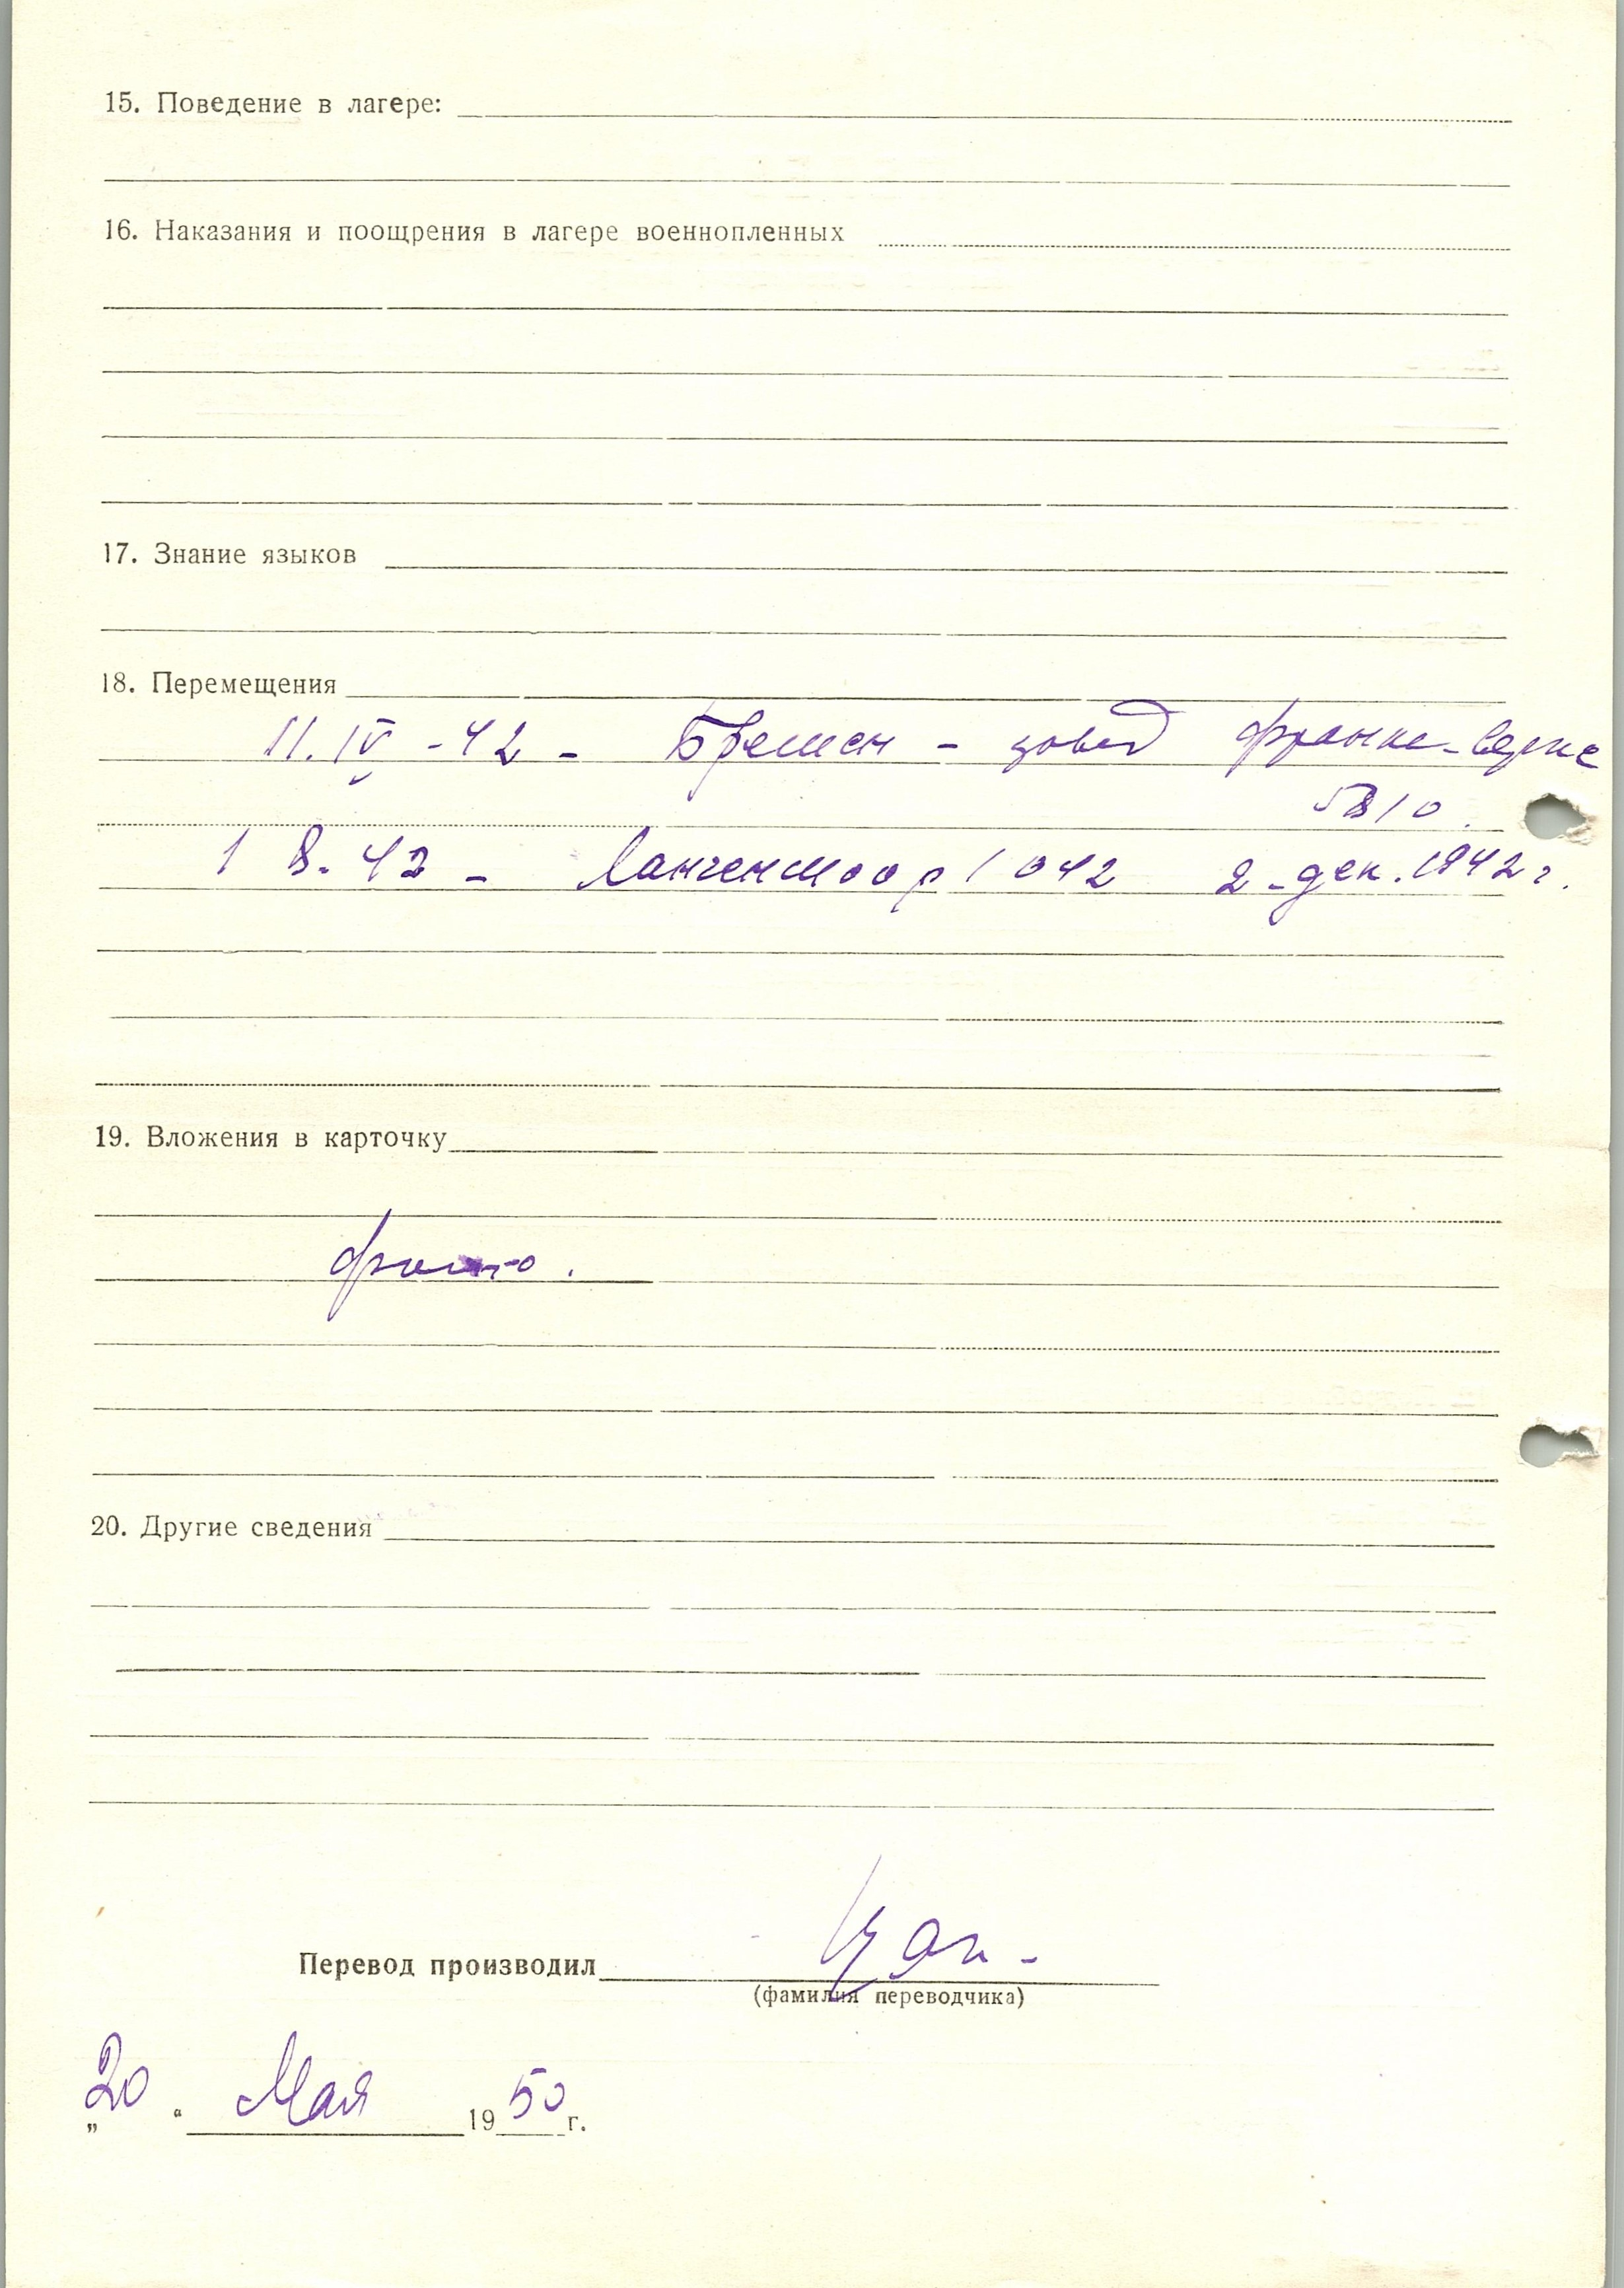 15. Поведение в лагере:
16. Наказания и поощрения в лагере военнопленных
17. Знание языков
18. Перемещения
11. IV - 42 - Бремен - завод Франке-Верке
1 8. 43 - Лангенмоор 1042 2-дек. 1942 г.
19. Вложения в карточку
фото.
20. Другие сведения
Перевод производил
(фамилия переводчика)
„20“ Мая 1950 г.